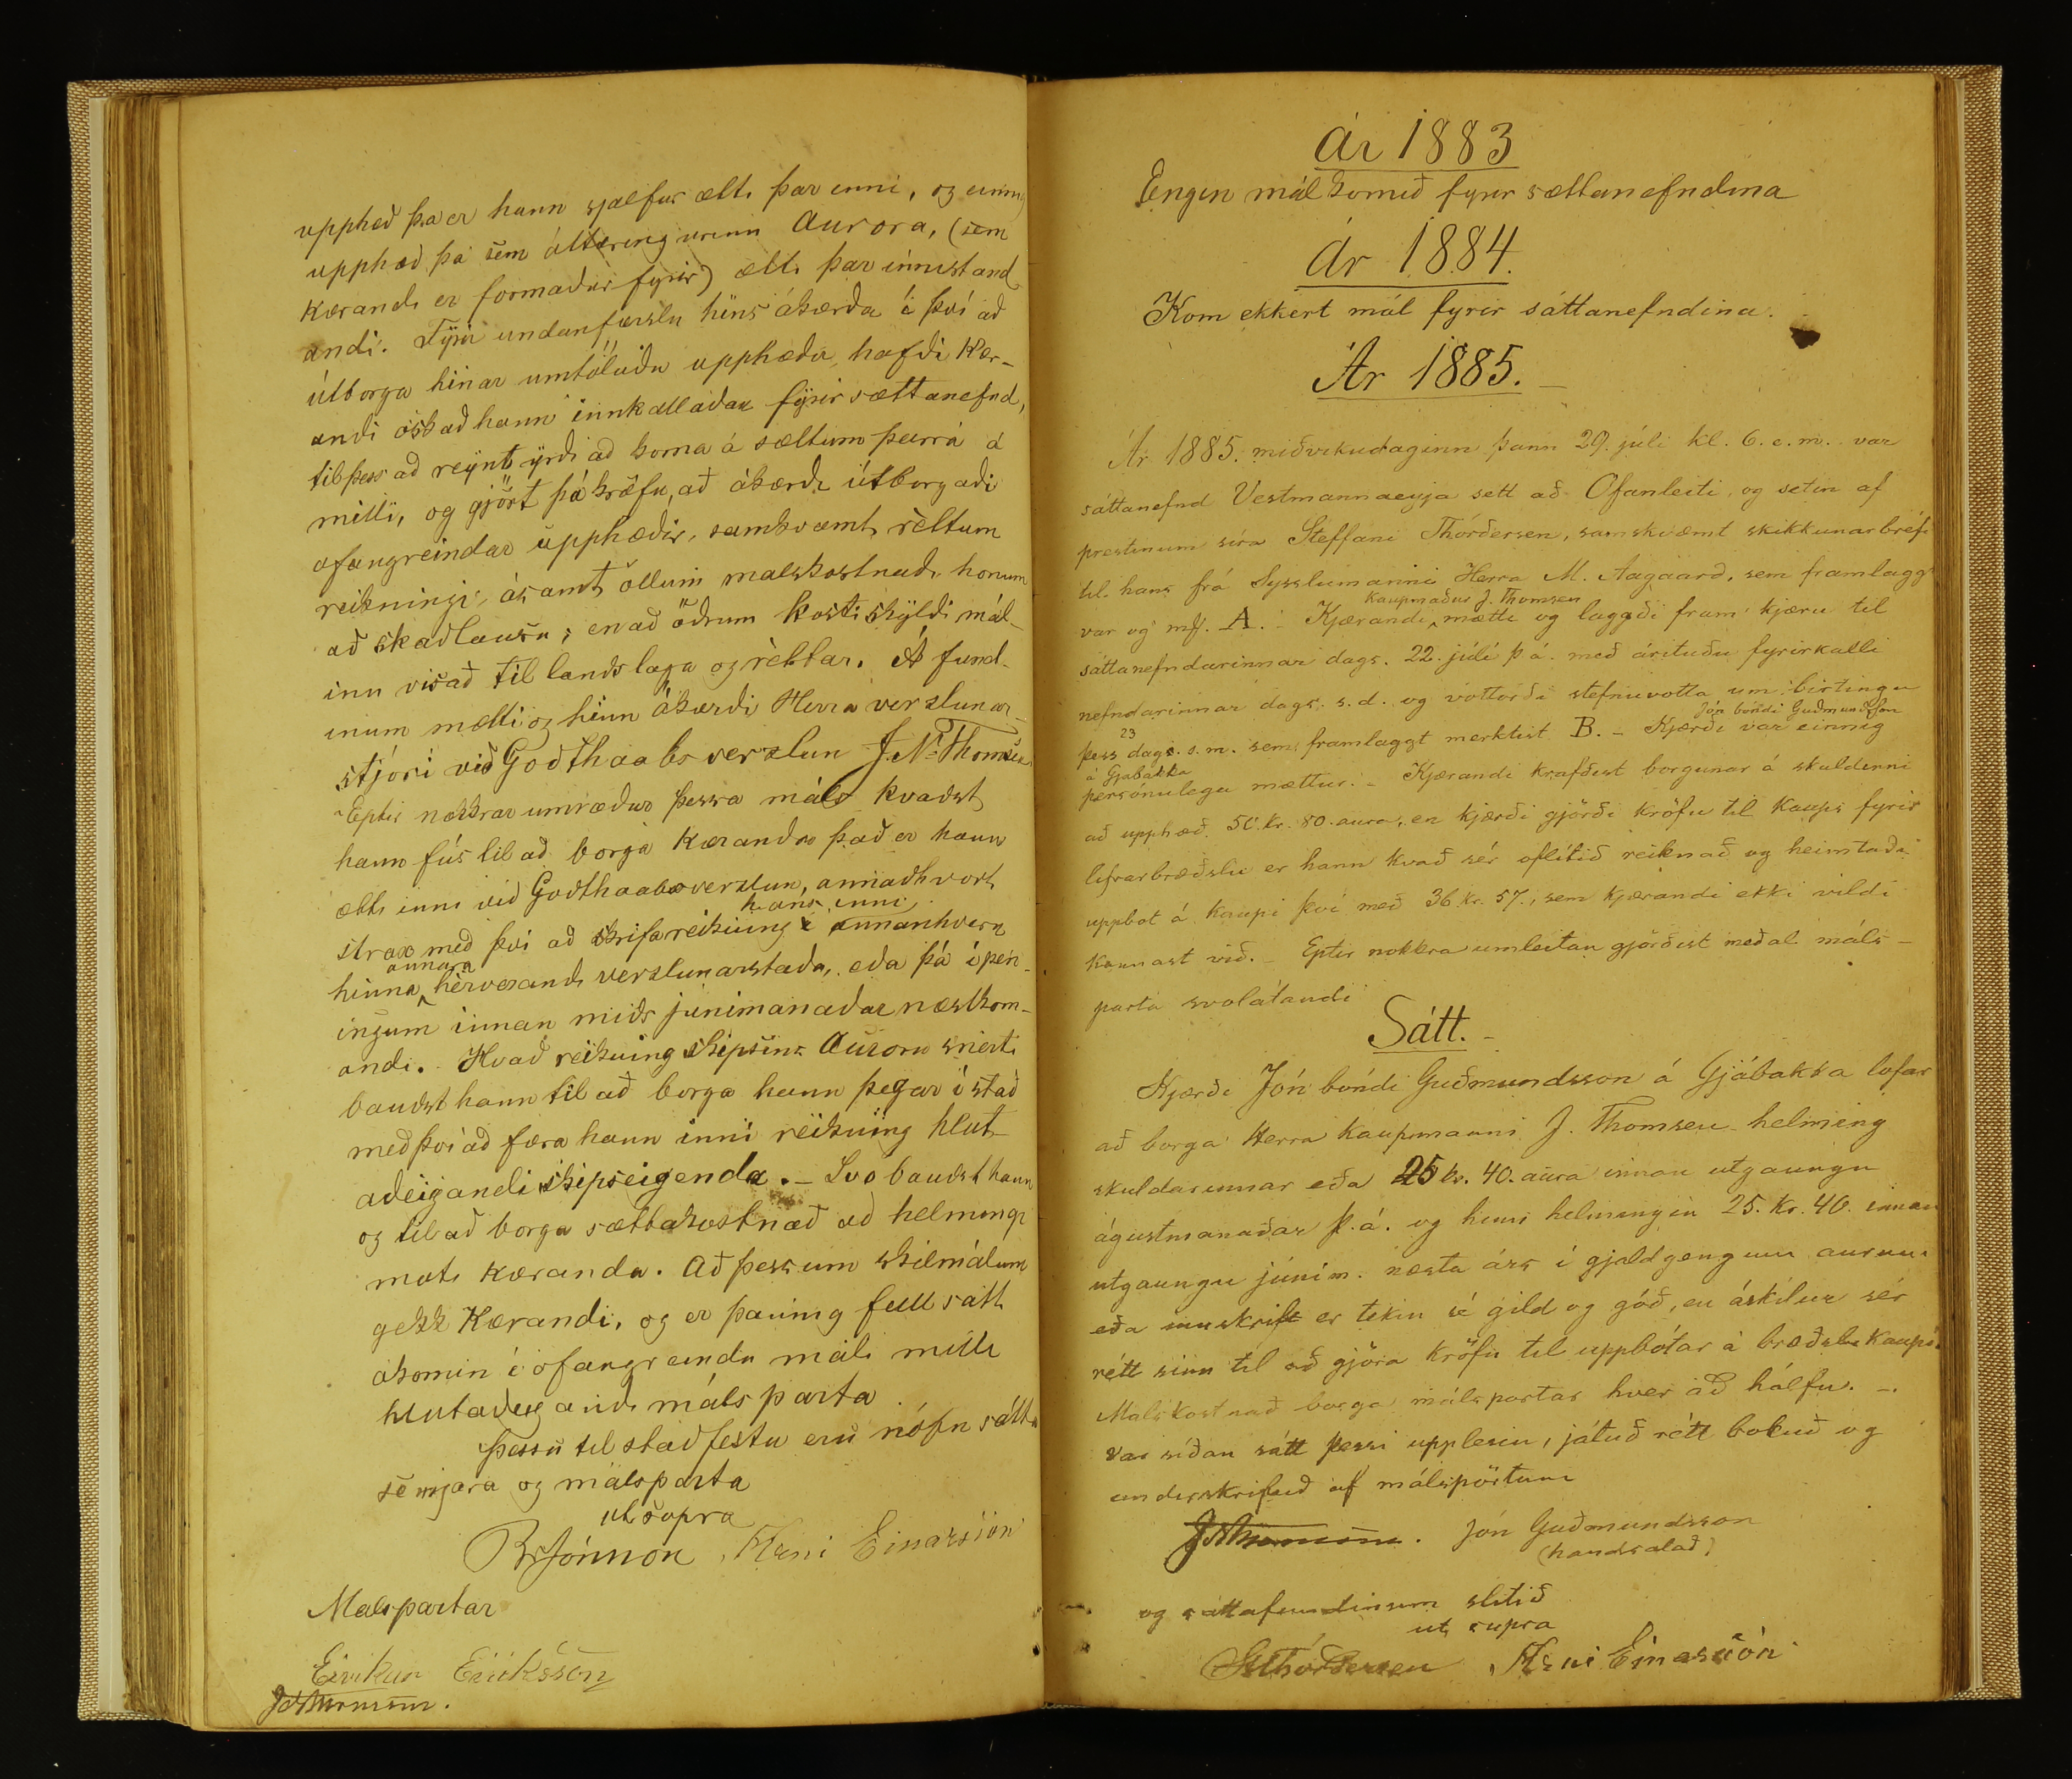 upphæð þa er hann sjalfur ætti þar inni, og einnig
upphæð þá sem áttæringurinn Aurora, (sem
Kærandi er formaður fyrir) ætti þar innistand
andi. Fyrir undanfærslu hins ákærða í því að
útborga hinar umtöluðu upphæðir hafði Kær-
andi óskað hann innkallaðan fyrir sættanefnd,
til þess að reynt yrði að koma á sættum þeirra á
milli, og gjört þá kröfu, að ákærði útborgaði
ofangreindar upphæðir, samkvæmt rèttum
reikningi, ásamt öllum malskostnaði honum
að skaðlausu; en að öðrum kosti skyldi mál-
inu visað til landslaga og rèttar. Á fund-
inum mætti og hinn ákærði Herra verzlunar-
stjóri við Godthaabs verzlun J. N. Thomsen
Eptir nokkrar umræður þessa máls kvaðst
hann fús til að borga Kæranda það er hann
ætti inni við Godthaabsverzlun, annaðhvort
strax með því að skrifa reikning hans inni í annanhvern
hinna annara hèrverandi verzlunarstaða, eða þá í pen-
ingum innan miðs junimanaðar næstkom-
andi. Hvað reikning skipsins Auroru snerti
bauðst hann til að borga hann þegar í stað
með því að færa hann inní reikning hlut-
aðeigandi skipseigenda. – Svo bauðst hann
og til að borga sættakostnað að helmingi
móti kæranda. Að þessum skilmálum
gekk Kærandi, og er þannig full sátt
ákomin í ofangreindu máli milli
hlutaðeigandi málsparta
Þessu til staðfestu eru nöfn sátta
semjara og málsparta
ut supra
BrJónnon, Árni Einarsson
Malspartar
Eirikur Eiríksson
JNThomsen.
Ár 1883
Engin mál komið fyrir sættanefndina
ár 1884.
Kom ekkert mál fyrir sáttanefndina.
Ár 1885. –
Ár 1885. miðvikudaginn þann 29. júli kl. 6. e. m. var
sáttanefnd Vestmannaeyja sett að Ofanleiti, og setin af
prestinum síra Steffani Thórdersen, samkvæmt skikkunarbréfi
til hans frá Sysslumanni Herra M. Aagaard, sem framlagg
var og mrk. A. – Kjærandi kaupmaður J. Thomsen mætti og lagði fram kjæru til
sáttanefndarinnar dags. 22. júlí þ. á. með árituðu fyrirkalli
nefndarinnar dags. s. d. og vottorði stefnuvotta um birtingu
þess 23 dags. s. m. sem framlaggt merktist B. – Kjærði Jón bóndi Guðmundsson var einnig
á Gjabakka
persónulega mættur. – Kjærandi krafðist borgunar á skuldinni
að upphæð 50. kr. 80. aura, en kjærði gjörði kröfu til kaups fyrir
lifrarbræðslu er hann kvað sér oflitið reiknað og heimtaði
uppbot á kaupi því með 36 kr. 57., sem kjærandi ekki vildi
kannast við. – Eptir nokkra umleitan gjörðist meðal máls-
parta svolátandi
Sátt. –
Kjærði Jón bóndi Guðmundsson á Gjábakka lofar
að borga Herra kaupmanni J. Thomsen helming
skuldarinnar eða 25 kr. 40. aura innan utgaungu
ágústmanaðar þ. á. og hinn helmingin 25. kr. 40. innan
utgaungu júním. næsta árs í gjaldgengum aurum
eða innskrift er tekin sé gild og góð, en áskilur sér
rétt sinn til að gjöra kröfu til uppbótar á bræðslukaupi.
Malskostnað borga málspartar hver að hálfu. –
Var síðan sátt þessi upplesin, játuð rétt bokuð og
underskrifuð af málspörtum
JNThomsen. Jón Guðmundsson
(handsalað)
og sáttafundinum slitið
ut supra
StThordersen Árni Einarsson